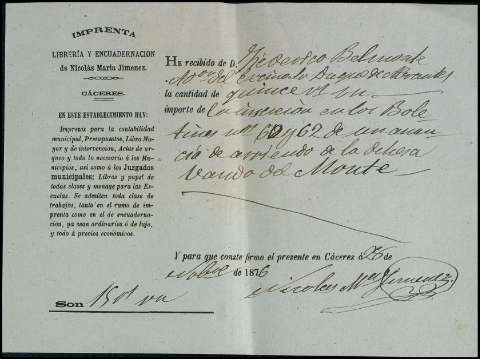 IMPRENTA
LIBRERÍA Y ENCUADERNACION
de Nicolás María Jimenez.
CÁCERES.
EN ESTE ESTABLECIMIENTO HAY:
Impresos para la contabilidad
municipal, Presupuestos, Libro Ma-
yor y de intervencion, Actas de ar-
queo y todo lo necesario á los Mu-
nicipios, así como á los Juzgados
municipales; Libros y papel de
todas clases y menage para las Es-
cuelas. Se admiten toda clase de
trabajos, tanto en el ramo de im-
prenta como en el de encuaderna-
cion, ya sean ordinarios ó de lujo,
y todo á precios económicos.
Son 15 rs vn
HE recibido de D. Federico Belmonte
del Duque de Abrantes
la cantidad de quince rs vn
importe de la insercion en los Bole
tines nos 60 y 62 de un anun
cio de arriendo de la dehesa
del Monte
Y para que conste firmo el presente en Cáceres á 26 de
de 1876
Nicolas Ma Jimenez